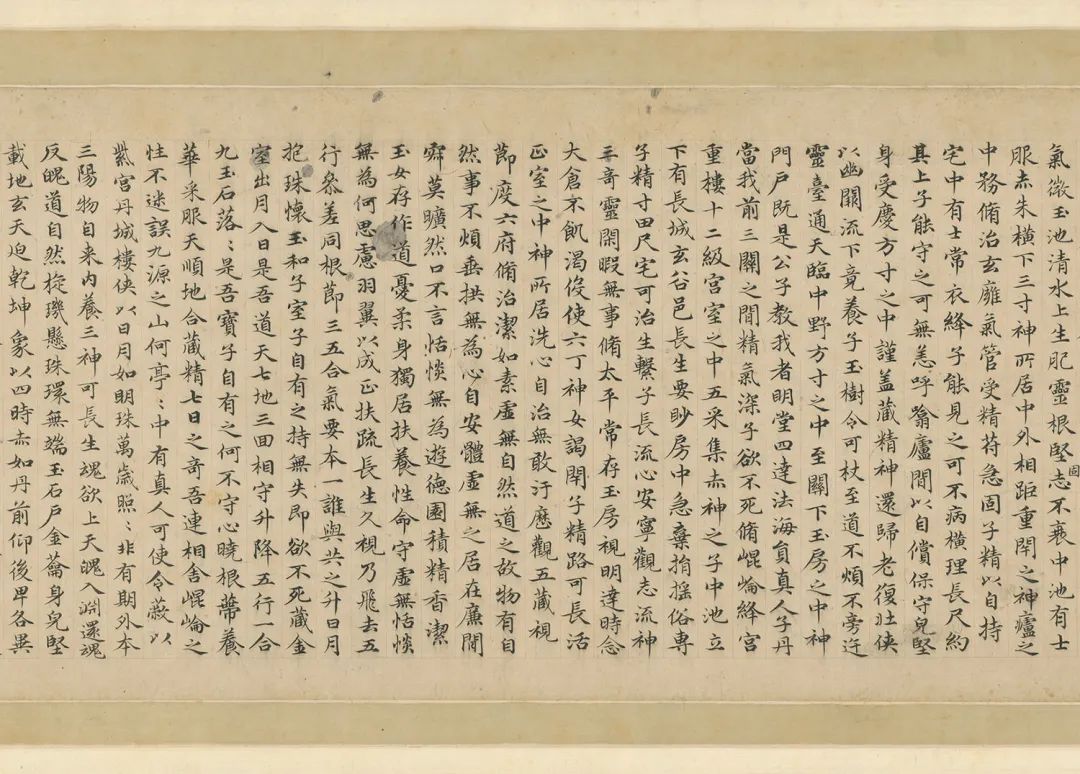 氣微玉池清水上生肥靈根堅固志不衰中池有士
服赤朱橫下三寸神所居中外相距重閇之神廬之
中務脩治玄廱氣管受精苻急固子精以自持
宅中有士常衣絳子能見之可不病橫理長尺約
其上子能守之可無恙呼翕廬間以自償保守皃堅
身受慶方寸之中謹盖藏精神還歸老復壯俠
以幽闕流下竟養子玉樹令可杖至道不煩不旁迕
靈臺通天臨中野方寸之中至關下玉房之中神
門戶既是公子教我者明堂四達法海負真人子丹
當我前三關之間精氣深子欲不死脩崐崘絳宮
重樓十二級宮室之中五采集赤神之子中池立
下有長城玄谷邑長生要眇房中急棄捐搖俗専
子精寸田尺宅可治生繫子長流心安寧觀志流神
三奇靈閑暇無事脩太平常存玉房視明達時念
大倉不飢渴伇使六丁神女謁閇子精路可長活
正室之中神所居洗心自治無敢汙歷觀五藏視
節度六府脩治潔如素虛無自然道之故物有自
然事不煩垂拱無為心自安體虛無之居在廉間
寂莫曠然口不言恬惔無為遊德園積精香潔
玉女存作道憂柔身獨居扶養性命守虛無恬惔
無為何思慮羽翼以成正扶疏長生久視乃飛去五
行參差同根節三五合氣要本一誰與共之升日月
抱珠懷玉和子室子自有之持無失即欲不死藏金
室出月入日是吾道天七地三回相守升降五行一合
九玉石落〻是吾寶子自有之何不守心曉根蔕養
華采服天順地合藏精七日之奇吾連相舍崐崘之
性不迷誤九源之山何亭〻中有真人可使令蔽以
紫宮丹城樓俠以日月如明珠萬歲照〻非有期外本
三陽物自来內養三神可長生魂欲上天魄入淵還魂
反魄道自然㨁璣懸珠環無端玉石戶金籥身皃堅
載地玄天迫乾坤象以四時赤如丹前仰後卑各異